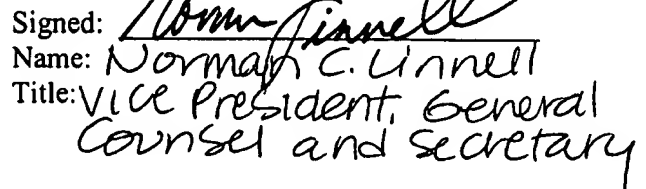 Signed: Norm Linnell
Name: Norman C. Linnell
Title: Vice President, General
Counsel and Secretary